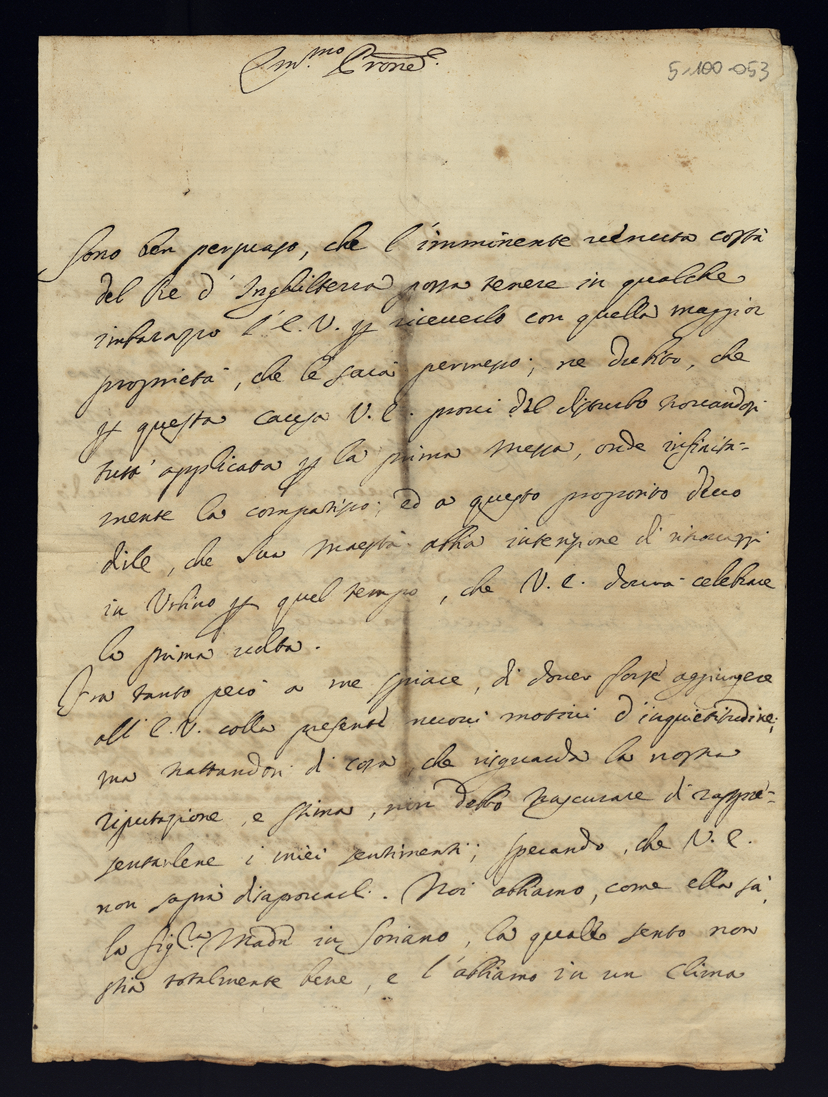 Em.mo Prone
5-100-053
Sono ben persuaso, che l'imminente venuta costà
del Re d'Inghilterra possa tenere in qualche
imbarazzo l'E.V. per riceverlo con quella maggior
proprietà, che le sarà permesso; ne dubito, che
per questa causa V.E. provi del disturbo trovandosi
tutt'applicata per la prima Messa, onde infinita=
mente la compatisco; ed a questo proposito devo
dirle, che Sua Maestà abbia intenzione di ritrovarsi
in Urbino per quel tempo, che V.E. dovrà celebrare
la prima volta.
Fra tanto però a me spiace, di dover forse aggiungere
all'E.V. colla presente nuovi motivi d'inquietudine;
ma trattandosi di cosa, che risguarda la nostra
riputazione, e stima, non debbo trascurare di rappre=
sentarlene i miei sentimenti; sperando, che V.E.
non saprà disaprovarli. Noi abbiamo, come ella sà,
la Sig.ra Madre in Soriano, la quale sento non
stia totalmente bene, e l'abbiamo in un clima